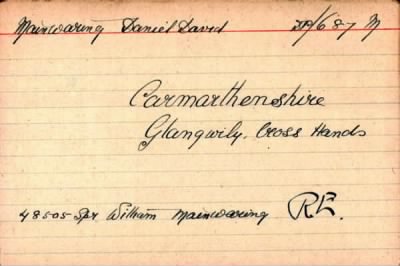 Mainwaring Daniel David /6 87 M
Carmarthenshire
Glangwily. Cross Hands
48505 Spr William Mainwaring RE.